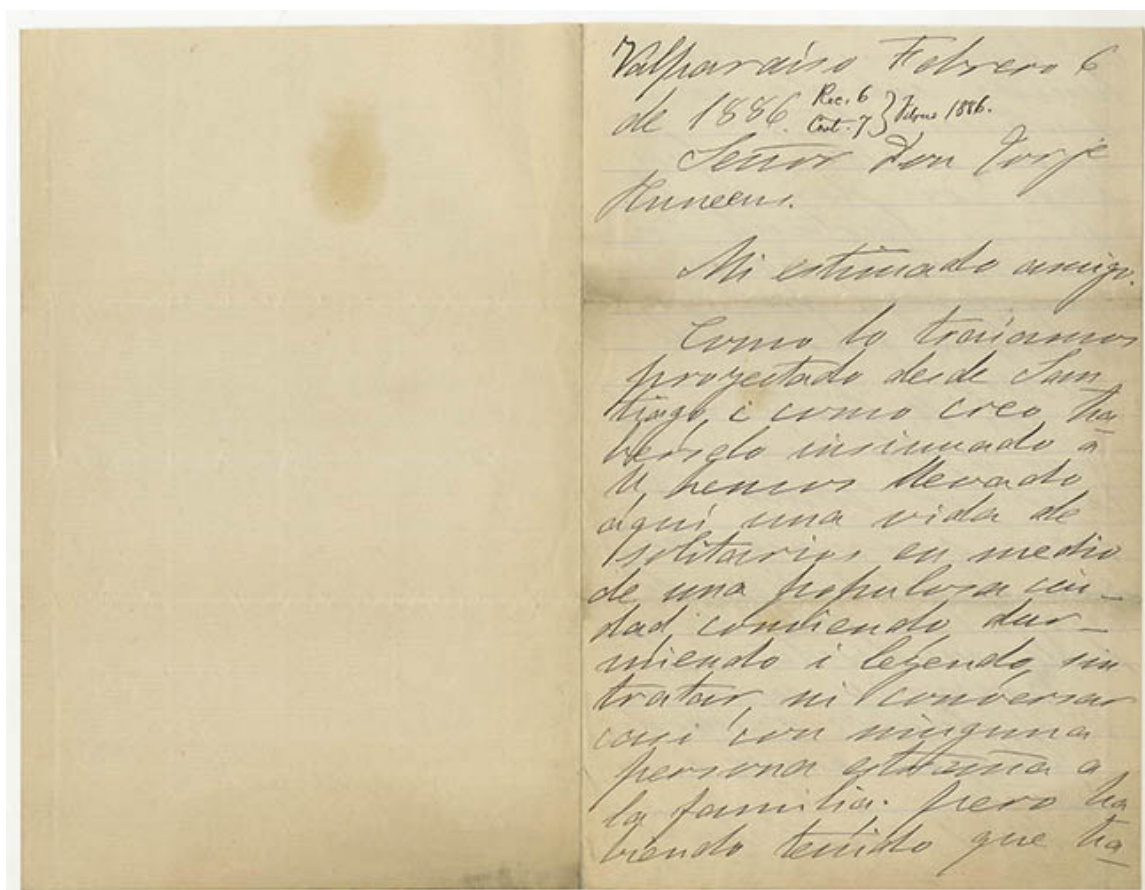 Valparaiso Febrero 6
de 1886. Rec. 6
Cont. 7 } Febrero 1886.
Señor Don Jorje
Huneeus.
Mi estimado amigo.
Como lo traiamos
proyectado desde San
tiago, i como creo ha
berselo insinuado á
U, hemos llevado
aquí una vida de
solitarios en medio
de una populosa ciu-
dad, comiendo dur-
miendo i leyendo, sin
tratar, ni conversar
casi con ninguna
persona estraña a
la familia. pero ha
biendo tenido que ha